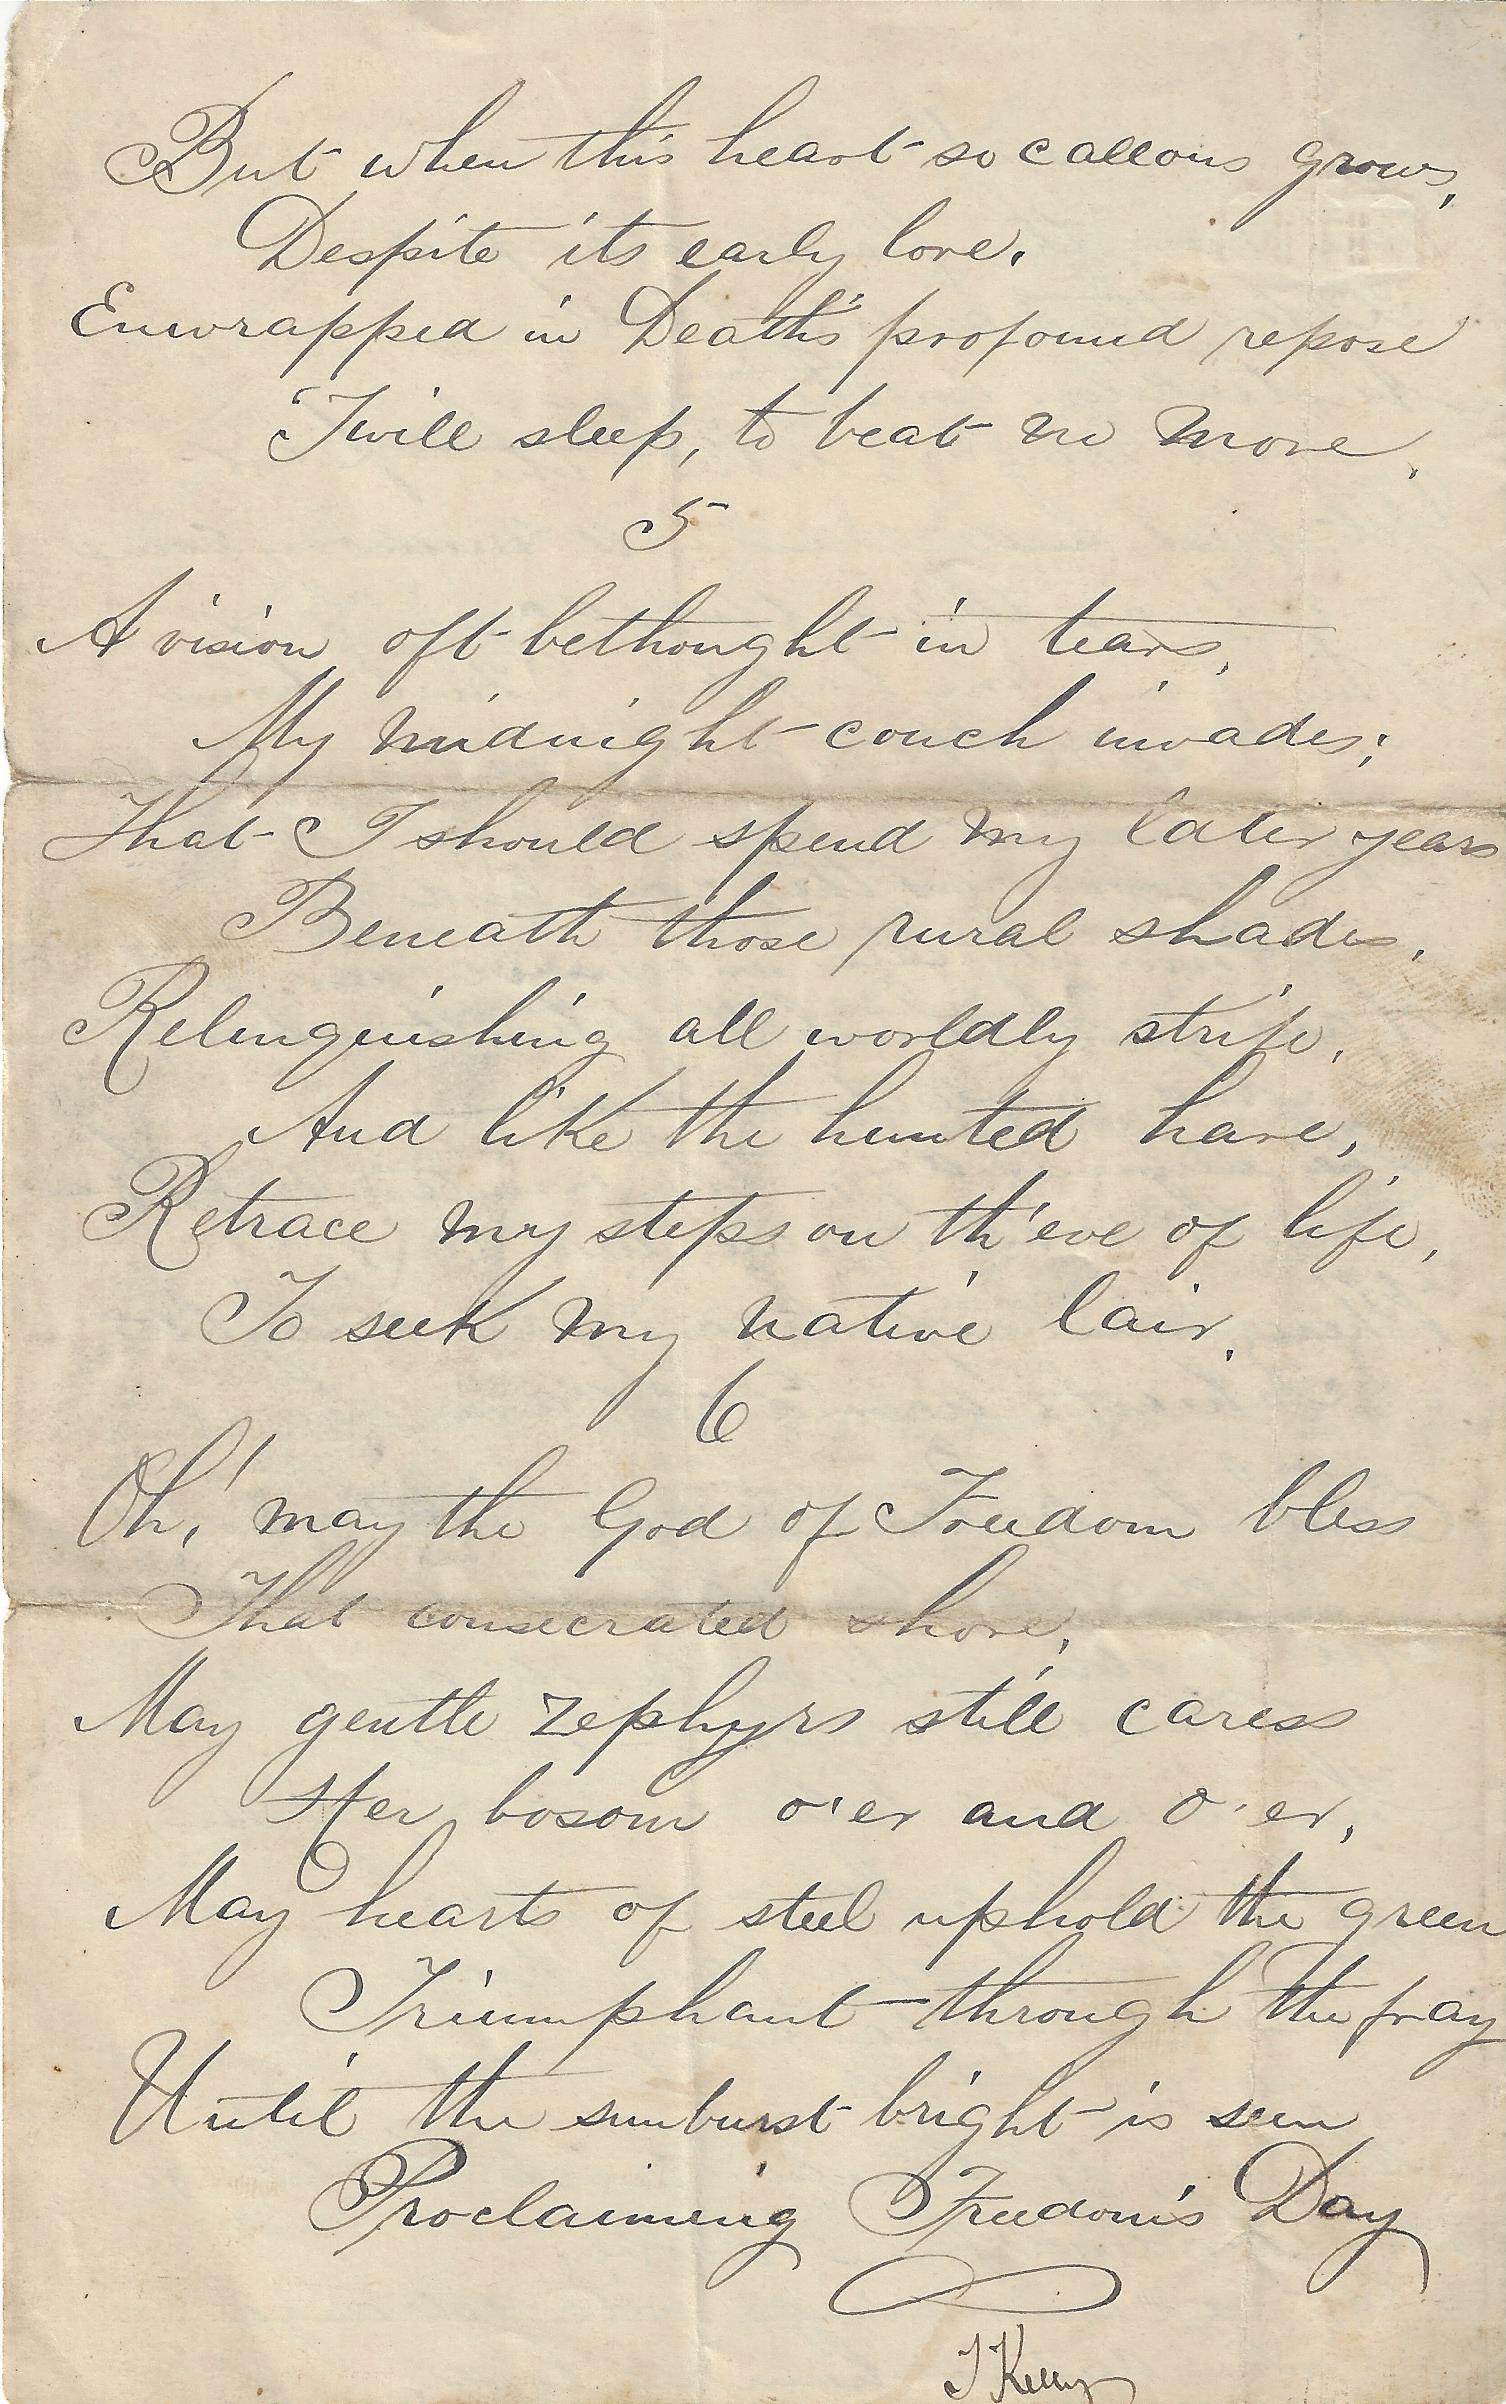 But when this heart so callous grows,
Despite its early love.
Enwrapped in Death's profound repose
'Twill sleep, to beat no more.
5
A vision oft bethought in tears,
My midnight couch invades;
That I should spend my later years
Beneath those rural shades,
Relinquishing all worldly strife,
And like the hunted hare,
Retrace my steps on th'eve of life,
To seek my native lair.
6
Oh! may the God of Freedom bless
That consecrated shore,
May gentle zephyrs still caress
Her bosom o'er and o'er,
May hearts of steel uphold the green
Triumphant through the fray
Until the sunburst bright is seen
Proclaiming Freedom's Day
J Kelly